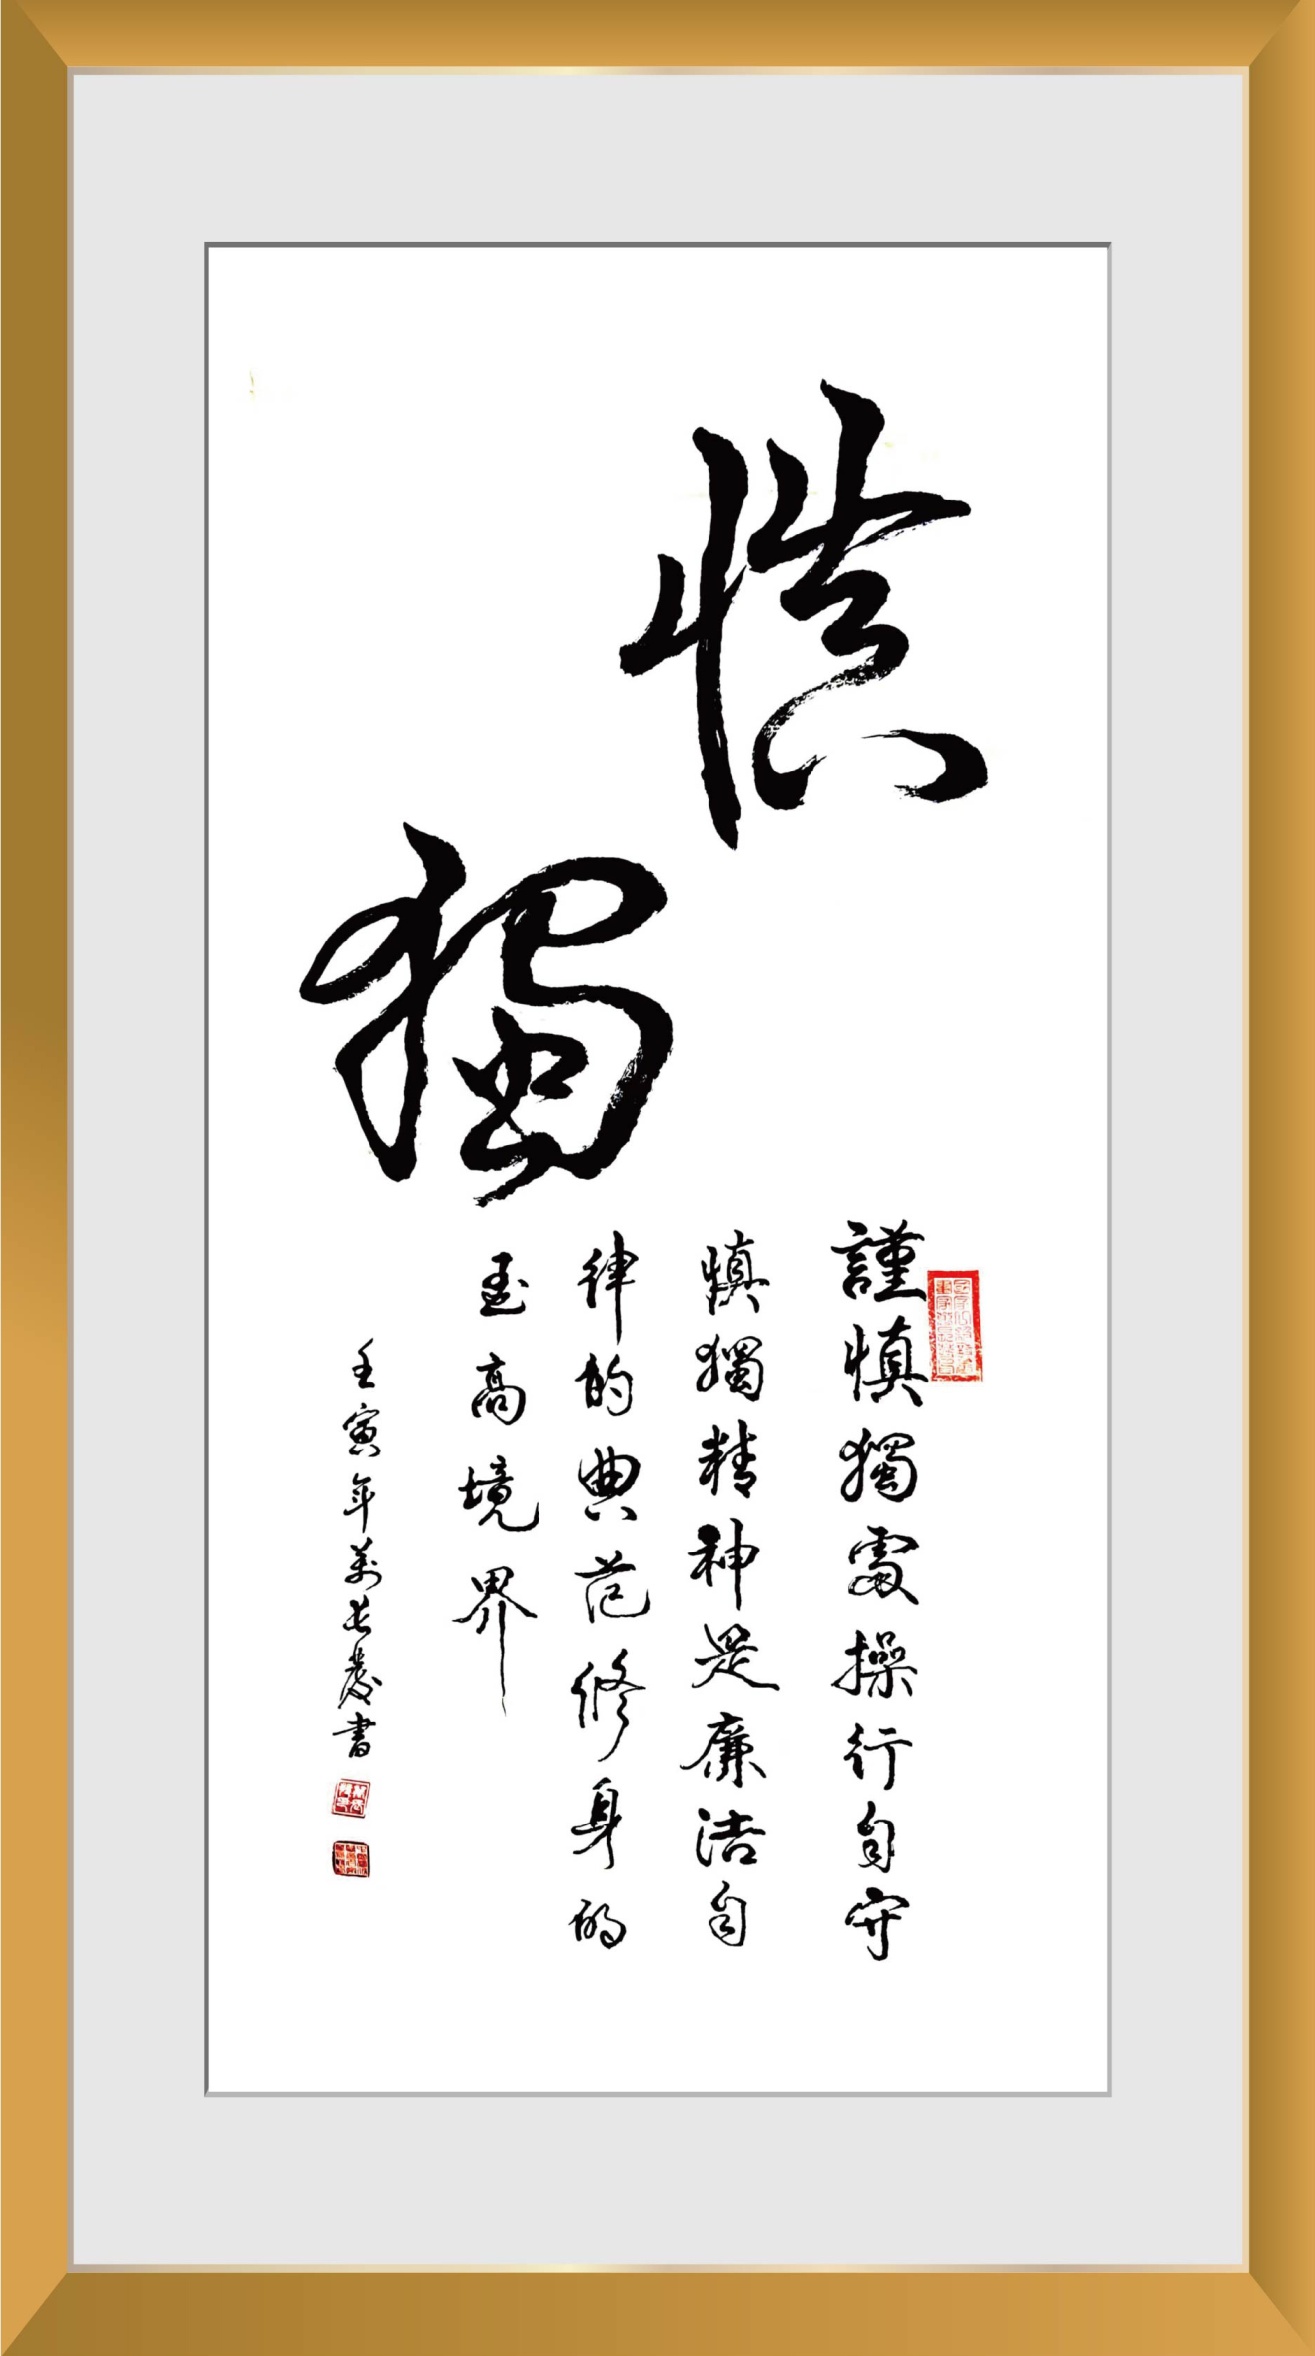 慎
獨
謹慎獨處操行自守
慎獨精神是廉洁自
律的典范修身的
至高境界
壬寅年萬長慶書